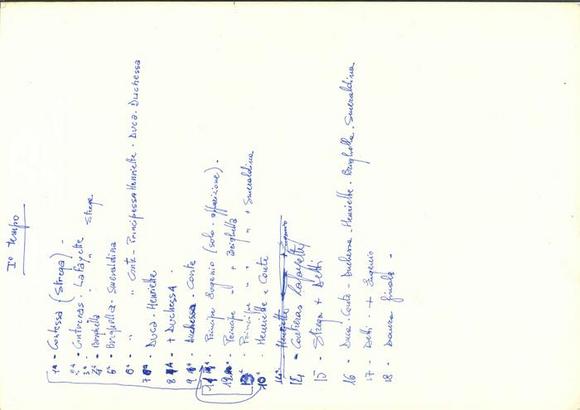 I° tempo
1° - Contessa (Strega) -
2° - Contreras - Lafayette
3° - Strega
4° - Brighella " "
5° - Brighella - Smeraldina
6° - " " Conte - Principessa Henriette - Duca - Duchessa
7 - Duca - Henriette
8 - + Duchessa -
9 - Duchessa - Conte
11 Principe Eugenio (solo - apparizione) -
12 - Principe " " Brighella
13 - Principe " " " " + Smeraldina
10° - Henriette e Conte
14° - Henriette + Eugenio
14 - Contreras Lafayette
15 - Strega +
16 - Duca - Conte - Duchessa - Henriette - Brighella - Smeraldina
17 - + Eugenio
18 - Danza finale -